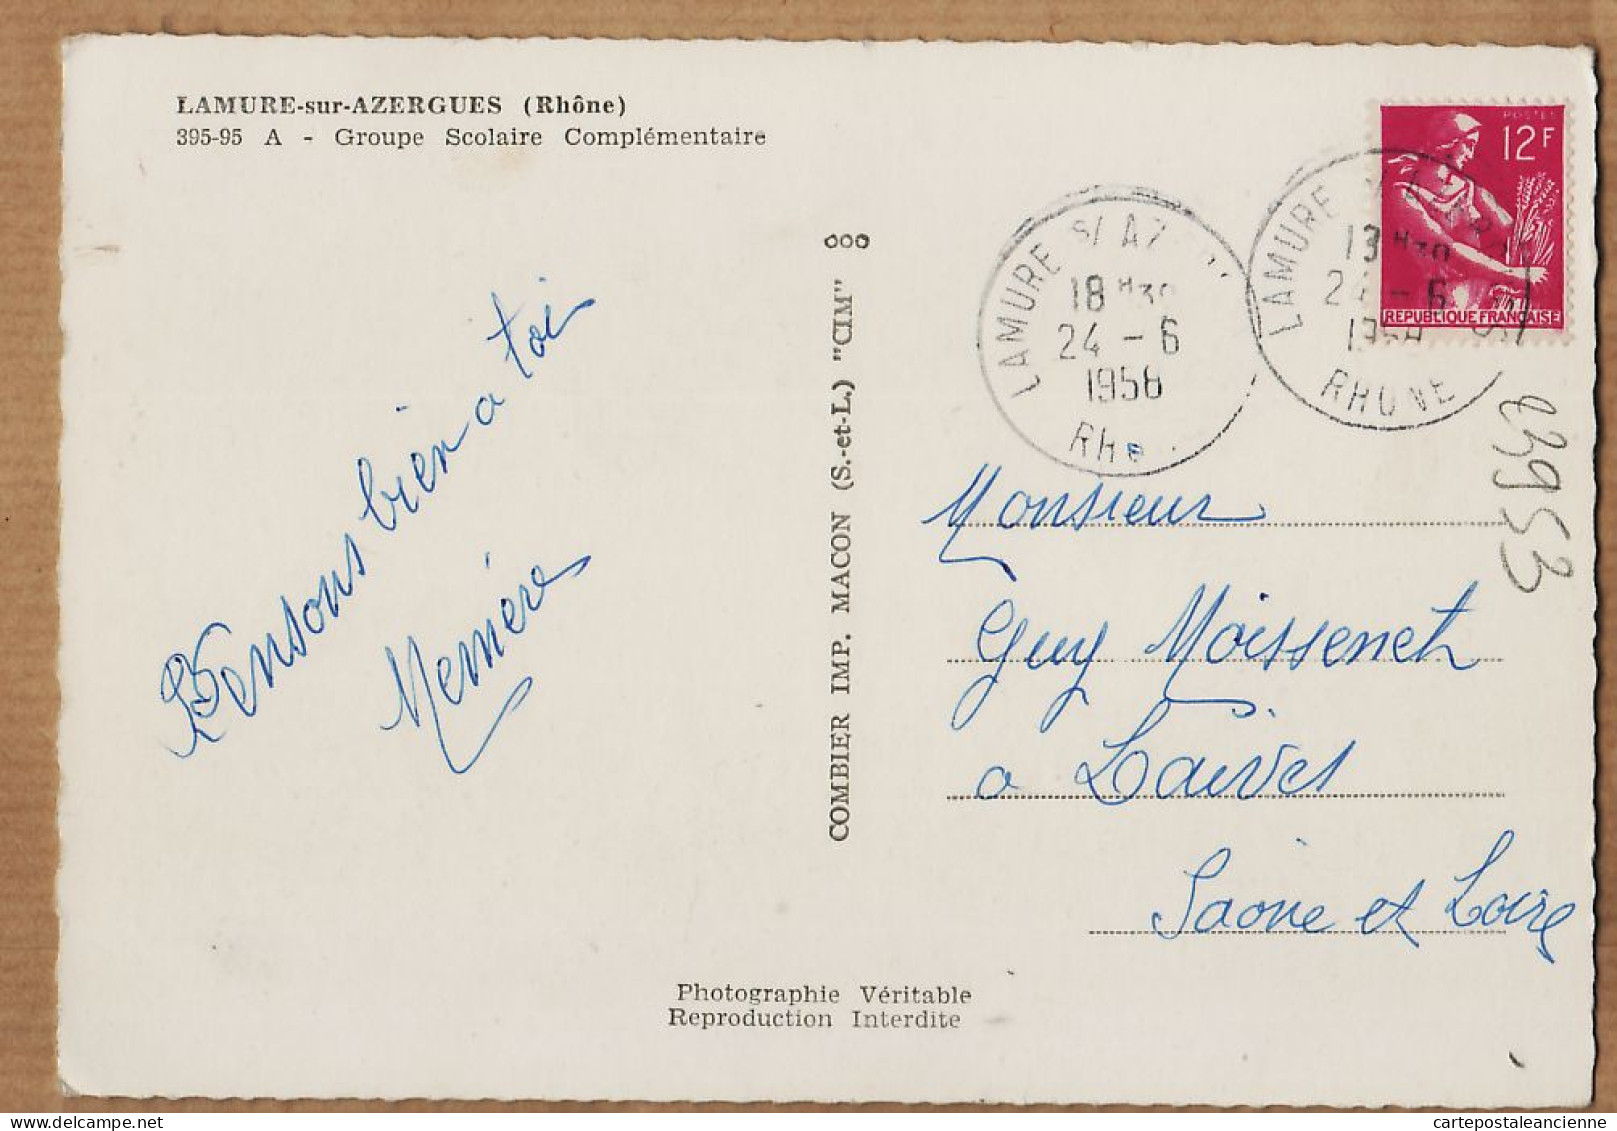 LAMURE-sur-AZERGUES (Rhône)
395-95 A - Groupe Scolaire Complémentaire
Pensons bien a toi
Memère
COMBIER IMP. MACON (S.-et-L.) "CIM"
POSTES
12F
REPUBLIQUE FRANÇAISE
LAMURE S/ AZ
18 H30
24 - 6
1958
Rh
LAMURE
24 - 6
RHONE
23953
Monsieur
Guy Moissenet
a Laives
Saône et Loire
Photographie Véritable
Reproduction Interdite
cartepostaleancienne